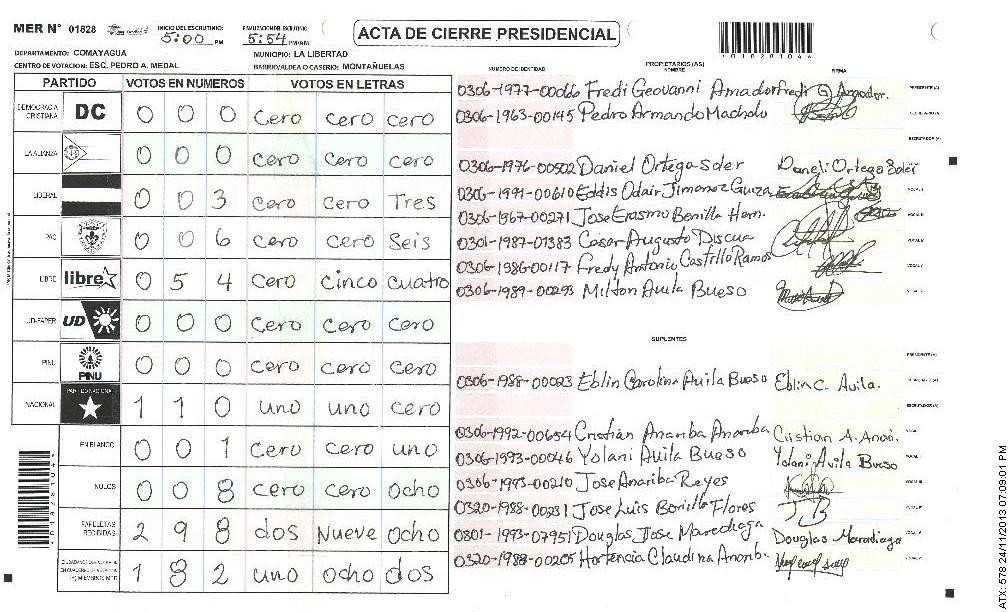 MER N° 01828 INICIO DEL ESCRUTINIO: 5:00 PM FINALIZACION DEL ESCRUTINIO: 5:54 PM/AM ACTA DE CIERRE PRESIDENCIAL
DEPARTAMENTO: COMAYAGUA MUNICIPIO: LA LIBERTAD
CENTRO DE VOTACION: ESC. PEDRO A. MEDAL BARRIO/ALDEA O CASERIO: MONTAÑUELAS
PARTIDO VOTOS EN NUMEROS VOTOS EN LETRAS
DEMOCRACIA CRISTIANA DC 0 0 0 cero cero cero
LA ALIANZA 0 0 0 cero cero cero
LIBERAL 0 0 3 cero cero Tres
PAC 0 0 6 cero cero Seis
LIBRE libre 0 5 4 cero cinco cuatro
UD-FAPER UD 0 0 0 cero cero cero
PINU PINU 0 0 0 cero cero cero
NACIONAL PARTIDO NACIONAL 1 1 0 uno uno cero
EN BLANCO 0 0 1 cero cero uno
NULOS 0 0 8 cero cero ocho
PAPELETAS RECIBIDAS 2 9 8 dos Nueve ocho
1 8 2 uno ocho dos
NUMERO DE IDENTIDAD PROPIETARIOS (AS) NOMBRE FIRMA
0306-1977-00066 Fredi Geovanni Amador Fredi G Amador. PRESIDENTE (A)
0306-1963-00145 Pedro Armando Macholo SECRETARIO (A)
ESCRUTADOR (A)
0306-1976-00502 Daniel Ortega Soler Daneli Ortega Soler
0306-1991-00610 Eddis Odair Jimonez Guiza
0306-1967-00271 Jose Erasmo Bonilla Hern.
0301-1987-01383 Cesar Augusto Discua
0306-1986-00117 Fredy Antonio Castillo Ramos
0306-1989-00293 Milton Avila Bueso
SUPLENTES
PRESIDENTE (A)
0306-1988-00023 Eblin Carolina Avila Bueso Eblin C. Avila. SECRETARIO (A)
ESCRUTADOR (A)
0306-1992-00654 Cristian Anariba Anariba Cristian A. Anari.
0306-1993-00046 Yolani Avila Bueso Yolani Avila Bueso
0306-1993-00210 Jose Anariba Reyes
0320-1988-00231 Jose Luis Bonilla Flores J B
0801-1993-07951 Douglas Jose Maradiaga Douglas Maradiaga
0320-1988-00205 Hortencia Claudina Anarib.
ATX: 578 24/11/2013 07:09:01 PM